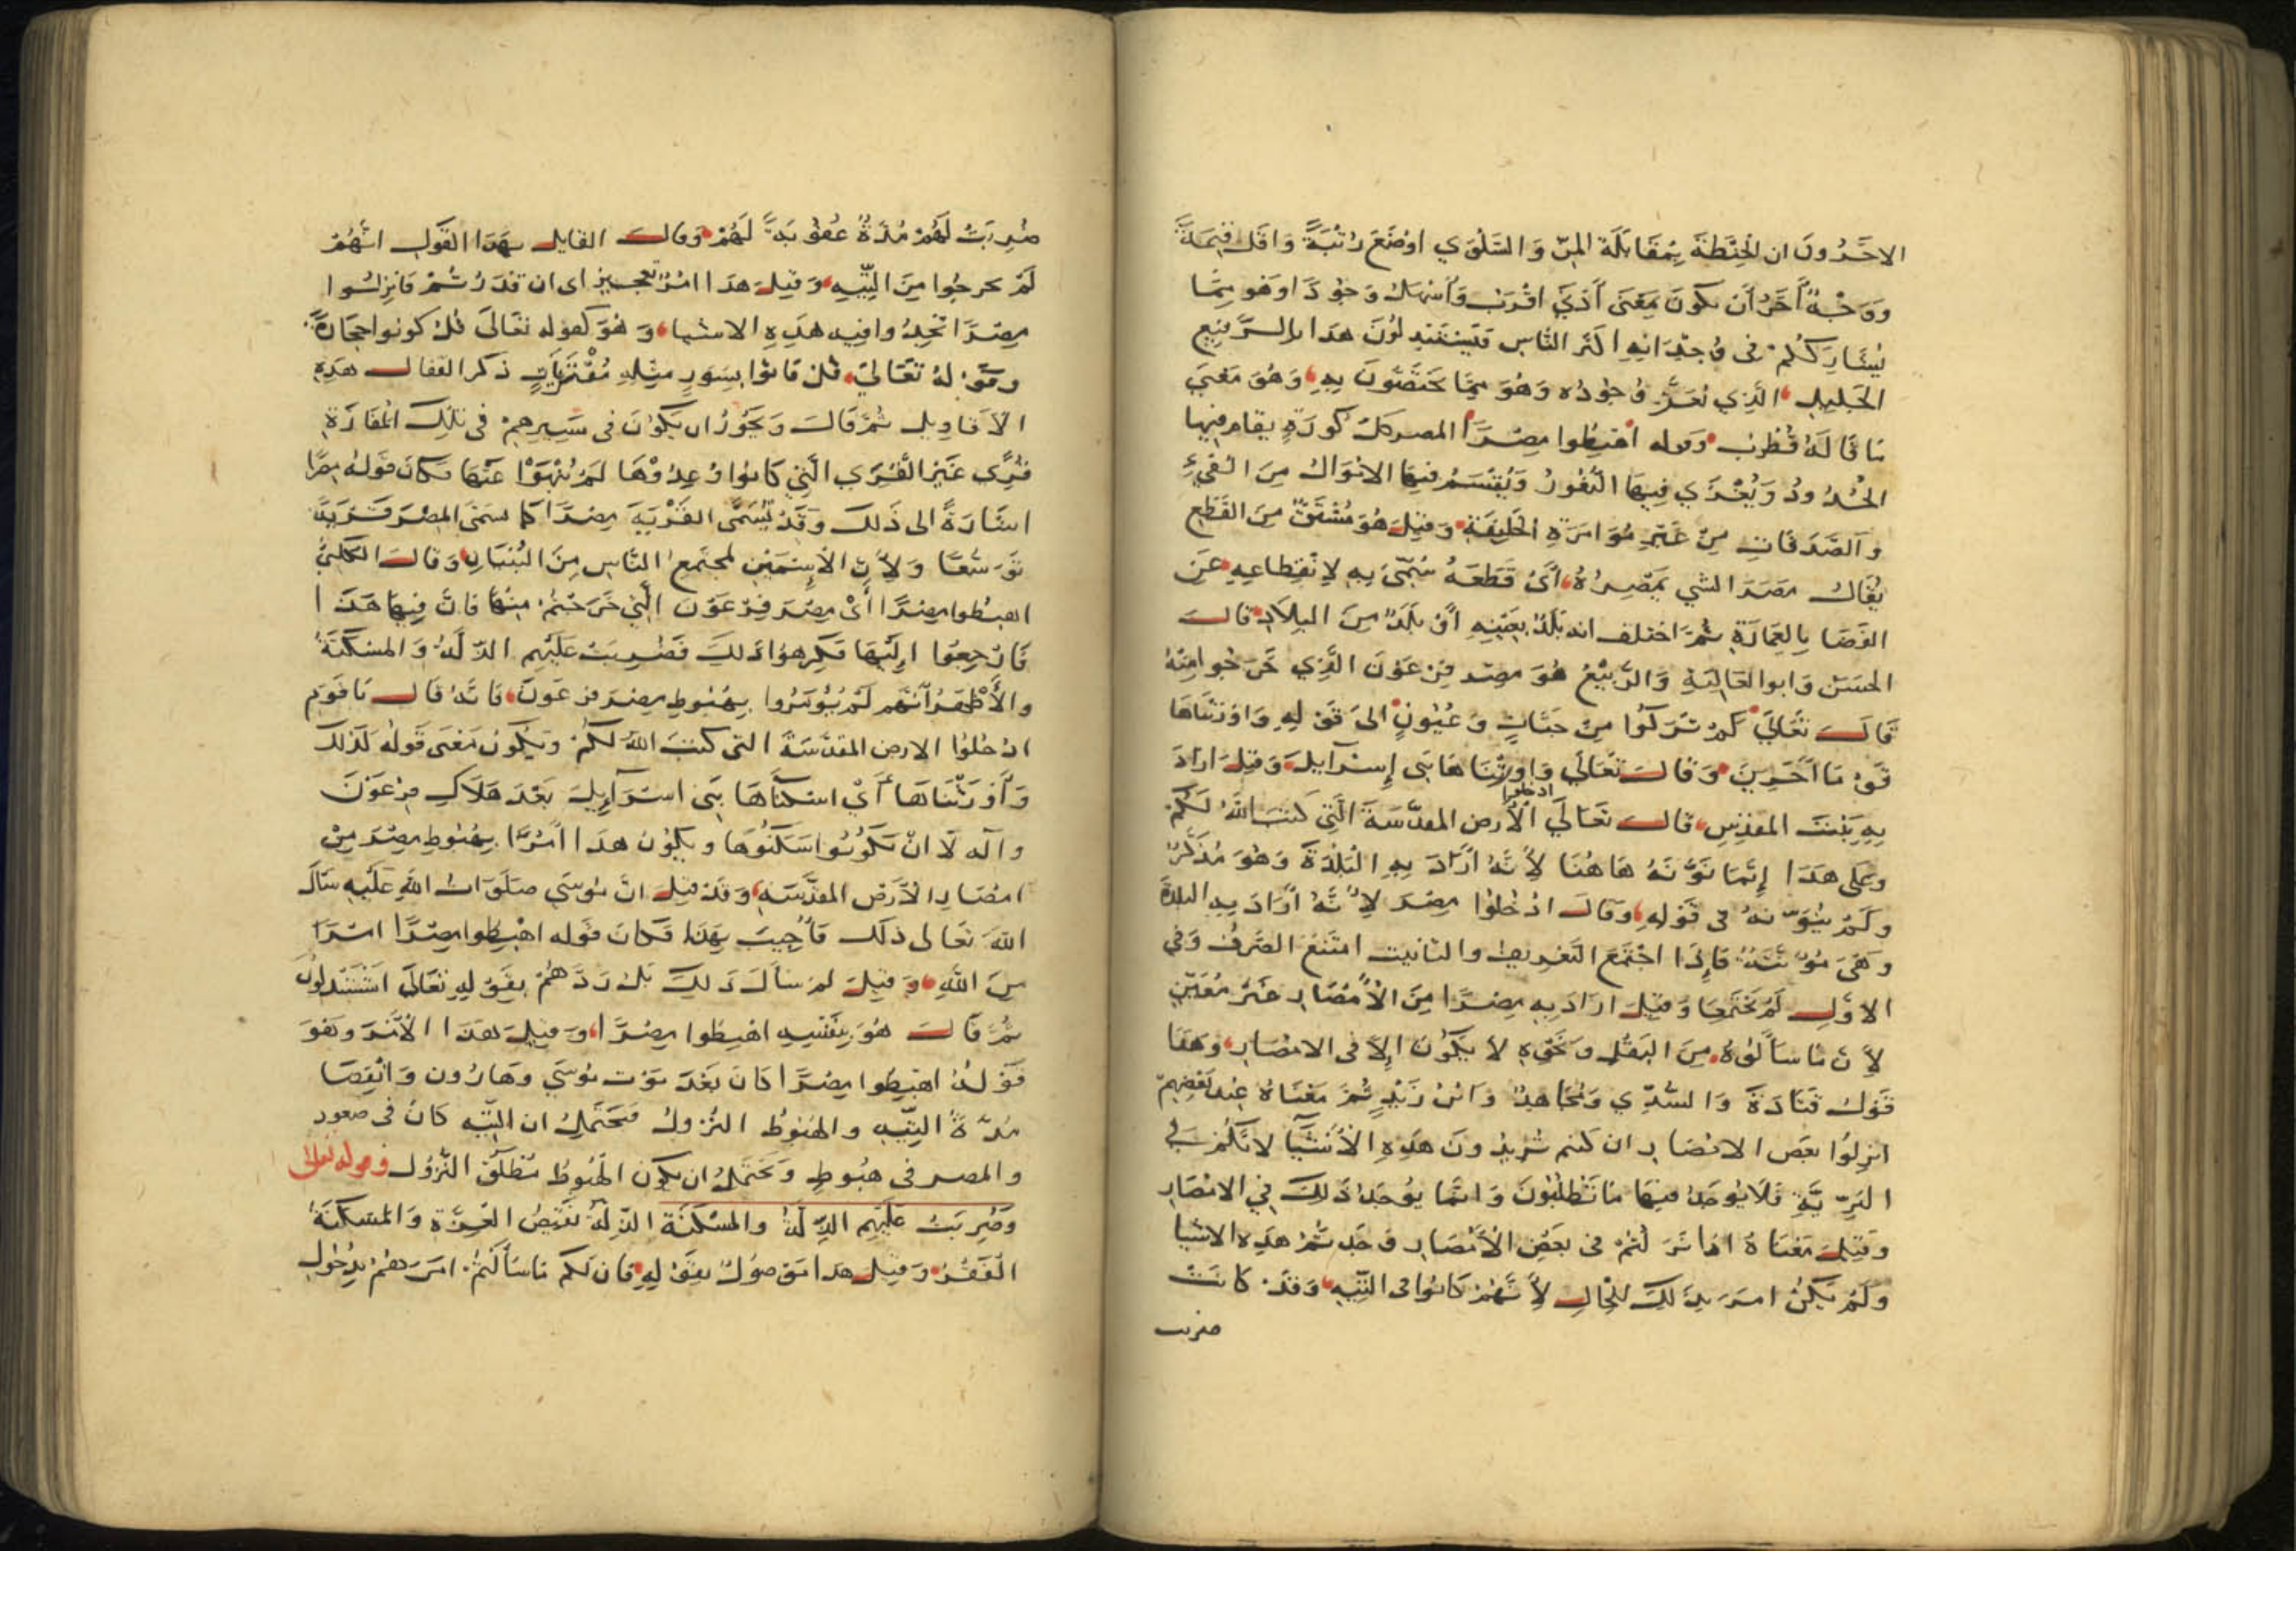 الاخرون ان الحنطة بمقابلة المن والسلوي اوضع رتبة واقل قيمة
ووجه آخر أن يكون معنى أدنى اقرب وأسهل وجودا وهو مما
يشارككم في وجدانه اكثر الناس فتستبدلون هذا بالرفيع
الجليل الذي يعز وجوده وهو مما تختصون به وهو معنى
ما قاله قطرب وقوله اهبطوا مصرا المصر كل كورة يقام فيها
الحدود ويغزي فيها الثغور ويقسم فيها الاموال من الفيء
والصدقات من غير مؤامرة الخليفة وقيل هو مشتق من القطع
يقال مصر الشي يمصره أي قطعه سمي به لانقطاعه عن
الفضا بالعمارة ثم اختلف انه بلد بعينه أو بلد من البلاد قال
الحسن وابوا العالية والربيع هو مصر فرعون الذي خرجوا منه
قال تعالي كم تركوا من جنات وعيون الى قوله واورثناها
قوما آخرين وقال تعالي واورثناها بني إسرآيل وقيل اراد
به بيت المقدس قال تعالي ادخلوا الأرض المقدسة التي كتب الله لكم
وعلى هذا إنما نونه هاهنا لأنه أراد به البلدة وهو مذكر
ولم ينونه في قوله وقال ادخلوا مصر لأنه أراد به البلدة
وهي مؤنثة فإذا اجتمع التعريف والتانيث امتنع الصرف وفي
الاول لم يجتمعا وقيل اراد به مصرا من الأمصار غير معين
لأن ما سألوه من البقل ونحوه لا يكون إلا في الامصار وهذا
قول قتادة والسدي ومجاهد وابن زيد ثم معناه عند بعضهم
انزلوا بعض الامصار ان كنتم تريدون هذه الأشيآ لانكم في
البرية فلا يوجد فيها ما تطلبون وانما يوجد ذلك في الامصار
وقيل معناه اذا نزلتم في بعض الأمصار وجدتم هذه الاشيا
ولم يكن امر بذلك للحال لأنهم كانوا في التيه وقد كانت
ضربت
ضربت لهم مدة عقوبة لهم وقال القايل بهذا القول انهم
لم يخرجوا من التيه وقيل هذا امر تعجيز اى ان قدرتم فانزلوا
مصرا تجدوا فيه هذه الاشيا وهو كقوله تعالى قل كونوا حجارة
وقوله تعالى قل فاتوا بسور مثله مفتريات ذكر القفال هذه
الأقاويل ثم قال ويجوز ان يكون في سيرهم في تلك المفازة
قري غير القري التي كانوا وعدوها لم ينهوا عنها فكان قوله مصرا
اشارة الى ذلك وقد يسمى القرية مصرا كما سمى المصر قرية
توسعا ولأن الاسمين لمجتمع الناس من البنيان وقال الكلبي
اهبطوا مصرا أي مصر فرعون التي خرجتم منها فان فيها هذا
فارجعوا إليها فكرهوا ذلك فضربت عليهم الذلة والمسكنة
والأظهر أنهم لم يؤمروا بهبوط مصر فرعون فانه قال يا قوم
ادخلوا الارض المقدسة التي كتب الله لكم ويكون معنى قوله كذلك
وأورثناها أي اسكناها بني اسرآييل بعد هلاك فرعون
وآله لا ان يكونوا سكنوها ويكون هذا أمرا بهبوط مصر من
امصار الأرض المقدسة وقد قيل ان موسى صلوات الله عليه سأل
الله تعالى ذلك فأجيب بهذا فكان قوله اهبطوا مصرا امرا
من الله وقيل لم يسأل ذلك بل ردهم بقوله تعالى أتستبدلون
ثم قال هو بنفسه اهبطوا مصرا وقيل هذا الأمر وهو
قوله اهبطوا مصرا كان بعد موت موسى وهارون وانقضا
مدة التيه والهبوط النزول فيحتمل ان التيه كان في صعود
والمصر في هبوط ويحتمل ان يكون الهبوط مطلق النزول وقوله تعالى
وضربت عليهم الذلة والمسكنة الذلة نقيض العزة والمسكنة
الفقر وقيل هذا موصول بقوله فان لكم ما سألتم امرهم بدخول